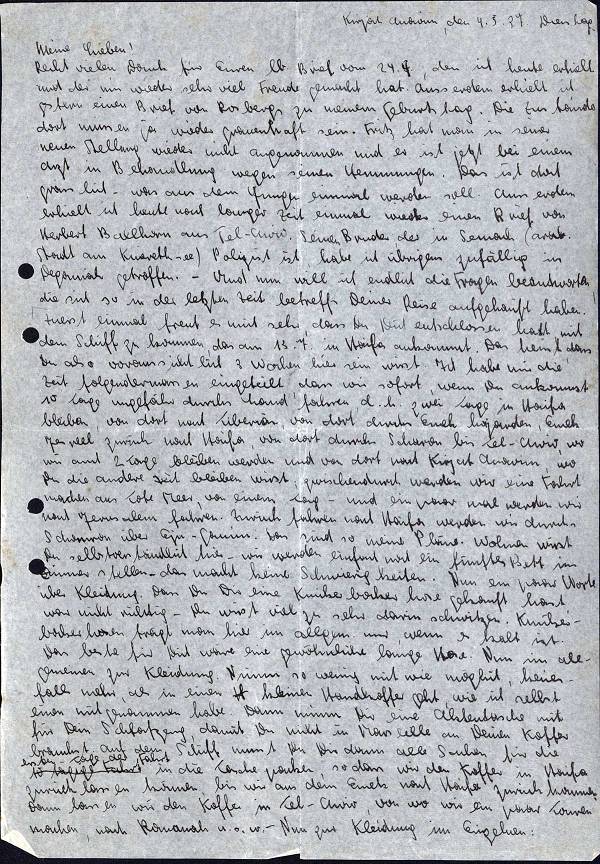 Kirjat Anavim, den 4.5.37. Dienstag.
Meine Lieben!
Recht vielen Dank für Euren lb Brief vom 24.4, den ich heute erhielt
und der mir wieder sehr viel Freude gemacht hat. Ausserdem erhielt ich
gestern einen Brief von Rosbergs zu meinem Geburtstag. Die Zustände
dort müssen ja wieder grauenhaft sein. Fritz hat man in seiner
neuen Stellung wieder nicht angenommen und er ist jetzt bei einem
Arzt in Behandlung wegen seinen Hemmungen. Das ist doch
grässlich - was aus dem Jungen einmal werden soll. Ausserdem
erhielt ich heute nach langer Zeit einmal wieder einen Brief von
Herbert Ballhorn aus Tel-Aviv. Seinen Bruder der in Semach (arab.
Stadt am Kinereth-see) Polizist ist, habe ich übrigens zufällig in
Deganiah getroffen. - Und nun will ich endlich die Fragen beantworten
die sich so in der letzten Zeit betreffs Deiner Reise aufgehäuft haben.
Zuerst einmal freut es mich sehr, dass Du Dich entschlossen hast mit
dem Schiff zu kommen das am 13.7. in Haifa ankommt. Das heisst dass
Du also voraussichtlich 3 Wochen hier sein wirst. Ich habe mir die
Zeit folgendermassen eingeteilt dass wir sofort, wenn Du ankommst
10 Tage ungefähr durchs Land fahren d.h. zwei Tage in Haifa
bleiben, von dort nach Tiberias, von dort durchs Emek hinunter, Emek
Jesreel zurück nach Haifa von dort durchs Scharon bis Tel-Aviv wo
wir auch 2 Tage bleiben werden und von dort nach Kirjat Anavim, wo
Du die andere Zeit bleiben wirst, zwischendurch werden wir eine Fahrt
machen ans Tote Meer von einem Tag - und ein paar mal werden wir
nach Jerusalem fahren. Zurück fahren nach Haifa werden wir durch
Schomron über Ejn-Gannim. Das sind so meine Pläne. Wohnen wirst
Du selbstverständlich hier - wir werden einfach noch ein fünftes Bett im
Zimmer stellen - das macht keine Schwierigkeiten. Nun ein paar Worte
über Kleidung. Dass Du Dir eine Knickerbockerhose gekauft hast
war nicht richtig - Du wirst viel zu sehr darin schwitzen. Knicker-
bockerhosen trägt man hier im allgem. nur wenn es kalt ist.
Das beste für Dich wäre eine gewöhnliche lange Hose. Nun im all-
gemeinen zur Kleidung. Nimm so wenig mit wie möglich, keines-
falls mehr als in einen kleinen Handkoffer geht, wie ich selbst
einen mitgenommen habe. Dann nimm Dir eine Aktentasche mit
für Dein Schiffszeug, damit Du nicht in Marseille an Deinen Koffer
brauchst. Auf dem Schiff musst Du Dir dann alle Sachen für die
ersten Tage der Fahrt
10 tägige Fahrt in die Tasche packen, sodass wir den Koffer in Haifa
zurücklassen können, bis wir aus dem Emek nach Haifa zurückkommen.
Dann lassen wir den Koffer in Tel-Aviv von wo wir ein paar Touren
machen, nach Raanana u.s.w. - Nun zur Kleidung im Einzelnen: